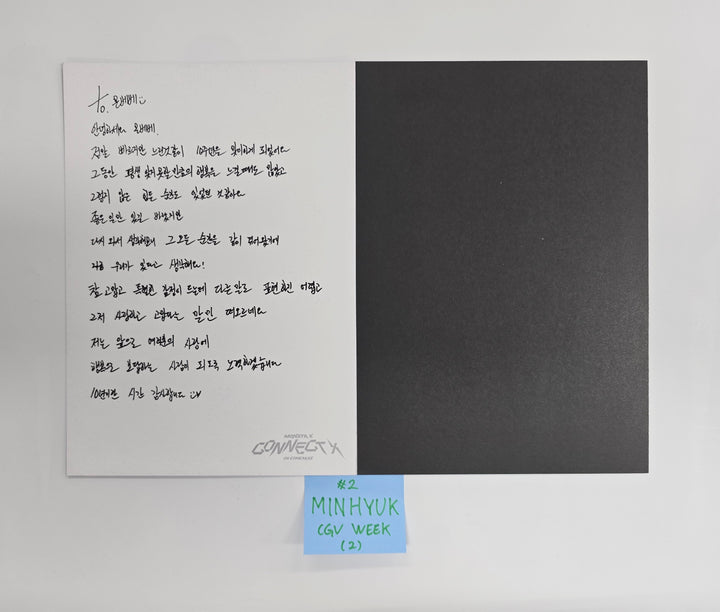 to. 몬베베
안녕하세요 몬베베.
정말 빠르지만 느린것같이 10주년을 맞이하게 되었어요
그동안 평생 잊지 못할 만큼의 행복을 느낄때도 있었고
그렇지 않은 힘든 순간도 있었던 것 같아요
좋은 일만 있길 바랬지만
다시 와서 생각해보니 그 모든 순간을 같이 겪어왔기에
지금 우리가 있다고 생각해요!
참 고맙고 특별한 감정이 드는데 다른말로 표현하긴 어렵고
그저 사랑하고 고맙다는 말만 떠오르네요
저는 앞으로 여러분의 사랑에
행복으로 보답하는 사람이 되도록 노력하겠습니다
10년이란 시간 감사합니다
MONSTA X
CONNECT X
IN CINEMAS
#2
MINHYUK
CGV WEEK
(2)